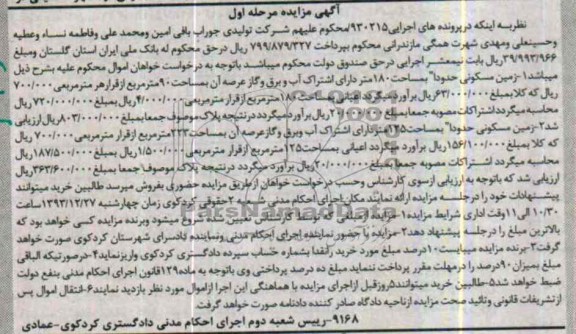 آگهی مزایده مرحله اول
نظربه اینکه درپرونده های اجرایی۹۳۰۲۱۵/محکوم علیهم شرکت تولیدی جوراب بافی امین ومحمد علی وفاطمه نساء وعطیه
وحسینعلی ومهدی شهرت همگی مازندرانی محکوم بپرداخت ۷۹۹/۸۷۹/۳۲۷ ریال درحق محکوم له بانک ملی ایران استان گلستان ومبلغ
۳۹/۹۹۳/۹۶۶ریال بابت نیمعشر اجرایی درحق صندوق دولت محکوم میباشد باتوجه به درخواست خواهان اموال محکوم علیه بشرح ذیل
میباشد۱-زمین مسکونی حدودا" بمساحت۱۸۰متر دارای اشتراک آب و برق وگاز عرصه آن بمساحت۹۰مترمربع ازقرارهر مترمربعی۷۰۰/۰۰۰
ریال که کلا بمبلغ۶۳/۰۰۰/۰۰۰ریال برآورد میگردد اعیانی بمساحت۱۸۰مترمربع ازقرار مترمربعی۴/۰۰۰/۰۰۰ریال بمبلغ۷۲۰/۰۰۰/۰۰۰ ریال
محاسبه میگردد اشتراکات مصوبه جمعا بمبلغ۲۰/۰۰۰/۰۰۰ریال برآورد میگردد درنتیجه پلاک موصوف جمعا بمبلغ۸۰۳/۰۰۰/۰۰۰ریال ارزیابی
شد۲-زمین مسکونی حدودا" بمساحت۱۲۵متر دارای اشتراک آب وبرق وگاز عرصه آن بمساحت۲۲۳مترمربع ازقرار مترمربعی۷۰۰/۰۰۰ ریال
که کلا بمبلغ۱۵۶/۱۰۰/۰۰۰ ریال برآورد میگردد اعیانی بمساحت۱۲۵مترمربع ازقرار مترمربعی۱/۵۰۰/۰۰۰ریال بمبلغ۱۸۷/۵۰۰/۰۰۰ریال
محاسبه میگردد اشتراکات مصوبه جمعا بمبلغ۲۰/۰۰۰/۰۰۰ریال برآورد میگردد درنتیجه پلاک موصوف جمعا بمبلغ۳۶۳/۶۰۰/۰۰۰ریال
ارزیابی شد که باتوجه به ارزیابی ازسوی کارشناس وحسب درخواست خواهان ازطریق مزایده حضوری بفروش میرسد طالبین خرید میتوانند
پیشنهادات خود را درجلسه مزایده ارائه نمایند مکان اجرای احکام مدنی شعبه ۲حقوقی کردکوی زمان چهارشنبه ۱۳۹۳/۱۲/۲۷ساعت
۱۰/۳۰ الی۱۱وقت اداری شرایط مزایده۱-مزایده از قیمت کارشناسی شروع میشود وبرنده مزایده کسی خواهد بود که
بالاترین مبلغ را درجلسه پیشنهاد دهد۲-مزایده با حضور نماینده اجرای احکام مدنی ونماینده دادسرای شهرستان کردکوی صورت خواهد
گرفت۳-برنده مزایده میبایست۱۰درصد مبلغ مورد خرید رانقدا بشماره حساب سپرده دادگستری کردکوی واریزنماید۴-درصورتیکه الباقی
مبلغ بمیزان۹۰درصد را درمهلت مقرر پرداخت ننماید مبلغ ده درصد پرداختی وی باتوجه به ماده۱۲۹قانون اجرای احکام مدنی بنفع دولت
ضبط خواهد شد۵-طالبین خرید میتوانند۵روزقبل ازاجرای مزایده با هماهنگی این اجرا ازاموال مورد نظر بازدید نمایند۶-انتقال اموال پس
ازتشریفات قانونی وتائید صحت مزایده ازناحیه دادگاه صادر کننده دادنامه صورت خواهد گرفت.
۹۱۶۸-رییس شعبه دوم اجرای احکام مدنی دادگستری کردکوی-عمادی